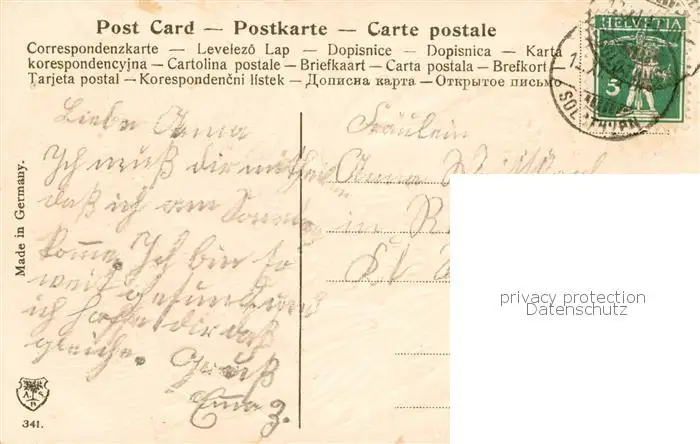 Post Card — Postkarte — Carte postale
Correspondenzkarte — Levelező Lap — Dopisnice — Dopisnica — Karta
korespondencyjna — Cartolina postale — Briefkaart — Carta postala — Brefkort
Tarjeta postal — Korespondenční listek — Дописна карта — Открытое письмо
HELVETIA
5
SOLOTHURN
Made in Germany.
Liebe Anna
Ich muß dir mitheilen
daß ich am Sonntag
komme. Ich bin so
weit gesund und
ich hoffe dir daß
gleiche. Gruß
Emma Z.
Fräulein
Anna
in
Kt
privacy protection
Datenschutz
341.